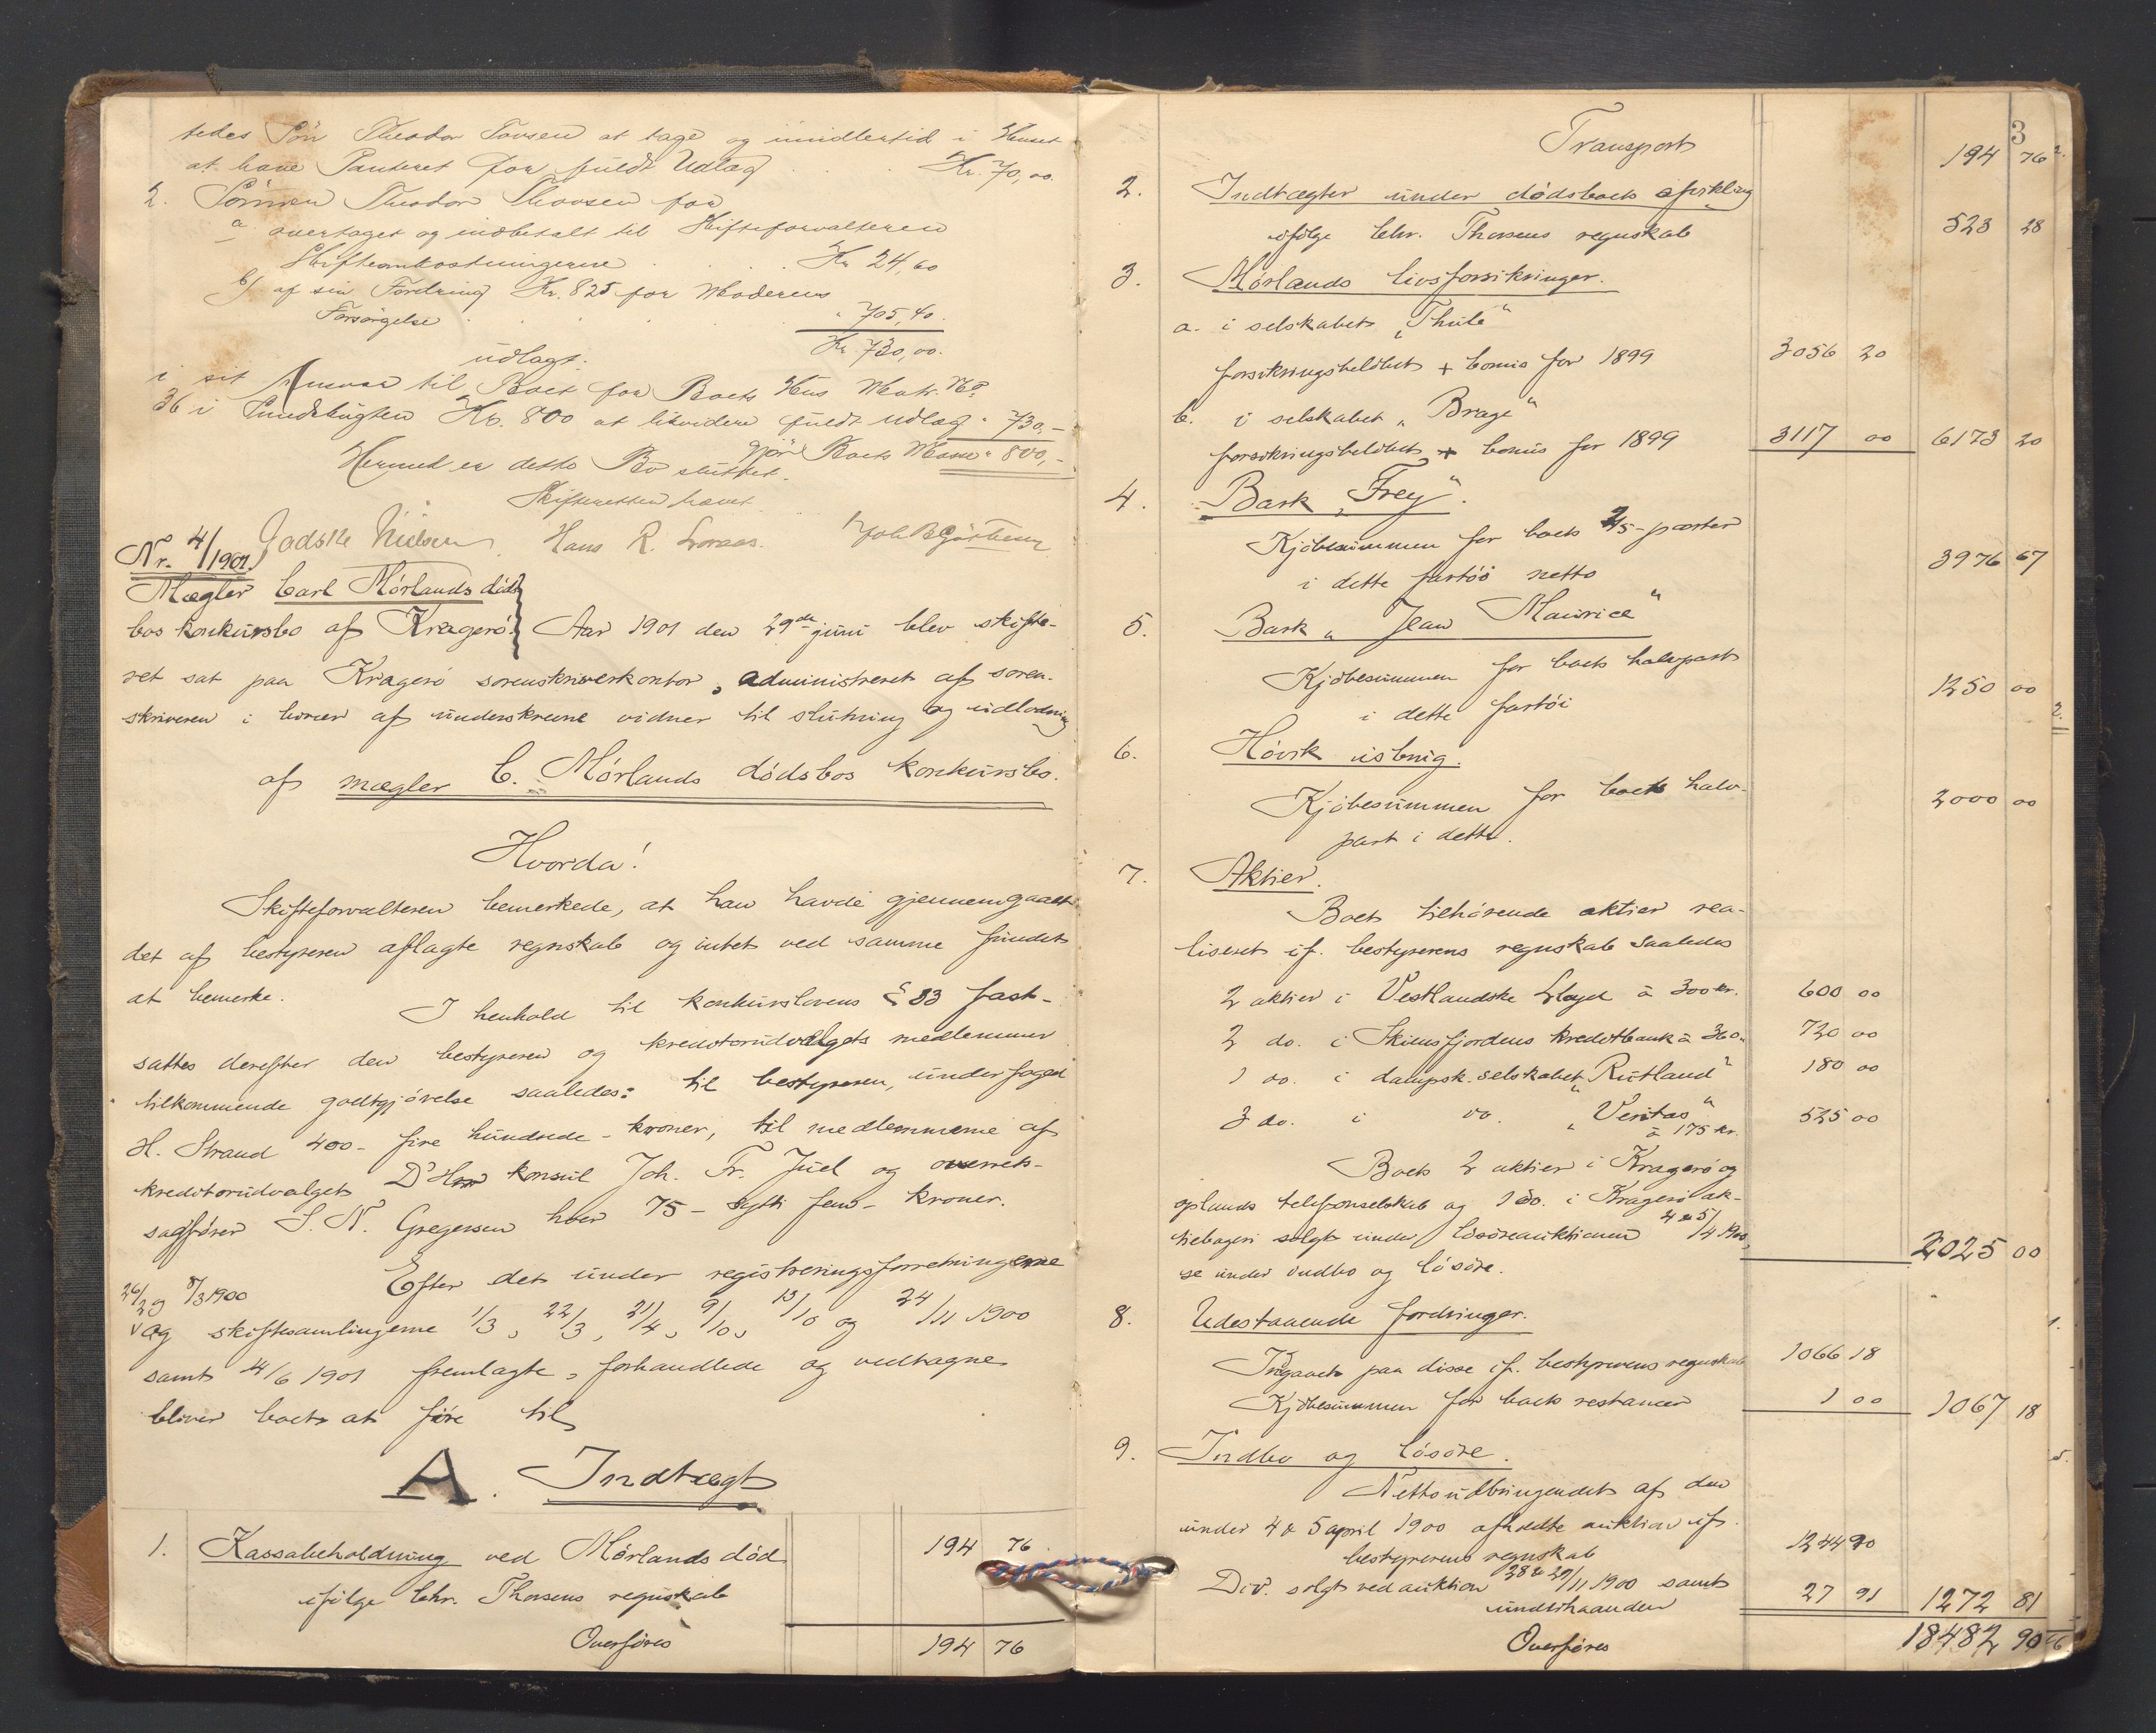 tedes Søn Theodor Tovsen at tage og imidlertid i Huset
at have Panteret for fuldt Udlæg . . . Kr. 70,00.
2. Sønnen Theodor Thovsen for
a overtaget og indbetalt til Skifteforvalteren
Skifteomkostningerne . . . Kr 24,60
b) af sin Fordring Kr. 825 for Moderens
Forsørgelse . . . . . " 705,40.
Kr 730,00.
udlagt.
i sit Ansvar til Boet for Boets Hus Matr. No
36 i Smedsbugten Kr. 800 at likvidere fuldt Udlæg " 730,–
gjør Boets Masse " 800,–
Hermed er dette Bo sluttet.
Skifteretten hævet
Gadske Nielsen. Hans R. Loraas.
Nr. 4/1901.
Mægler Carl Mørlands døds
bos konkursbo af Kragerø. Aar 1901 den 29de juni blev skifte-
ret sat paa Kragerø sorenskriverkontor, administreret af soren-
skriveren i hvær af underskrevne vidner til slutning og udlodning
af mægler C. Mørlands dødsbos konkursbo.
Hvorda!
Skifteforvalteren bemerkede, at han havde gjennemgaaet
det af bestyreren aflagte regnskab og intet ved samme fundet
at bemerke.
I henhold til konkurslovens § 33 fast-
sattes derefter den bestyreren og kreditorudvalgets medlemmer
tilkommende godtgjørelse saaledes: til bestyreren, underfoged
H. Strand 400 – fire hundrede – kroner, til medlemmerne af
kreditorudvalget D'Hrr konsul Joh. Fr. Juel og overrets-
sagfører S. N. Gregersen hver 75 – sytti fem – kroner.
Efter det under registreringsforretningerne
26/2 og 8/3 1900
og skiftesamlingerne 1/3, 22/3, 21/4, 9/10, 13/10 og 24/11 1900
samt 4/6 1901 fremlagte, forhandlede og vedtagne
bliver boet at føre til
A. Indtægt
1. Kassabeholdning ved Mørlands død 194 76
ifølge Chr. Thorsens regnskab
Overføres 194 76
3
Transport 194 76
2. Indtægter under dødsboets afvikling
ifølge Chr. Thorsens regnskab 523 28
3. Mørlands livsforsikringer.
a. i selskabet „Thule“
forsikringsbeløbet + bonus for 1899 3056 20
b. i selskabet „Brage“
forsikringsbeløbet + bonus for 1899 3117 00 6173 20
4. Bark „Frey“.
Kjøbesummen for boets 2/5-parter
i dette fartøi netto 3976 67
5. Bark „Jean Maurice“
Kjøbesummen for boets halvpart
i dette fartøi 1250 00
6. Høvik isbrug.
Kjøbesummen for boets halv-
part i dette. 2000 00
7. Aktier.
Boet tilhørende aktier rea-
liseret if. bestyrerens regnskab saaledes
2 aktier i Vestlandske Lloyd à 300 kr. 600 00
2 do. i Skiensfjordens kreditbank à 360 " 720 00
1 do. i dampsk.selskabet „Rutland“ 180 00
3 do. i do. „Veritas“
à 175 kr. 525 00
Boets 2 aktier i Kragerø og
oplands telefonselskab og 1 do. i Kragerø ak-
tiebageri solgt under løsøreauktionen 4 & 5/4 1900,
se under indbo og løsøre. 2025 00
8. Udestaaende fordringer.
Indgaaet paa disse if. bestyrerens regnskab 1066 18
Kjøbesummen for boets restancer 1 00 1067 18
9. Indbo og løsøre.
Nettoudbringendet af den
under 4 & 5 april 1900 afholdte auktion if.
bestyrerens regnskab 1244 90
Div. solgt ved auktion 28 & 29/11 1900 samt
underhaanden 27 91 1272 81
Overføres 18482 90